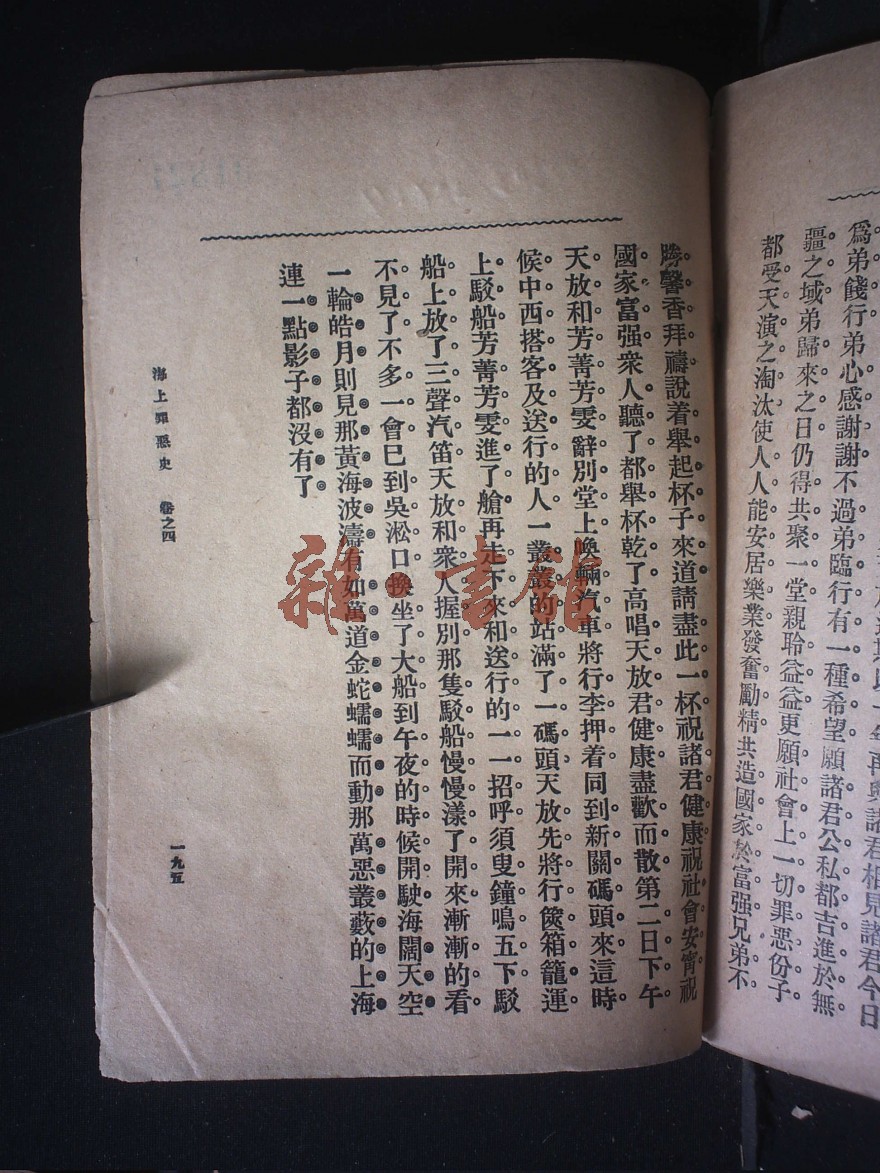 再與諸君相見諸君今日
爲弟餞行弟心感謝謝不過弟臨行有一種希望願諸君公私都吉進於無
疆之域弟歸來之日仍得共聚一堂親聆益益更願社會上一切罪惡份子
都受天演之淘汰使人人能安居樂業發奮勵精共造國家於富强兄弟不
勝馨香拜禱說着舉起杯子來道請盡此一杯祝諸君健康祝社會安甯祝
國家富强衆人聽了都舉杯乾了高唱天放君健康盡歡而散第二日下午
天放和芳菁芳雯辭別堂上喚輛汽車將行李押着同到新關碼頭來這時
候中西搭客及送行的人一叢叢的站滿了一碼頭天放先將行篋箱籠運
上駁船芳菁芳雯進了艙再走下來和送行的一一招呼須叟鐘鳴五下駁
船上放了三聲汽笛天放和衆人握別那隻駁船慢慢漾了開來漸漸的看
不見了不多一會已到吳淞口換坐了大船到午夜的時候開駛海闊天空
一輪皓月則見那黃海波濤有如萬道金蛇蠕蠕而動那萬惡叢藪的上海
連一點影子都沒有了
海上罪惡史 卷之四
一九五
雜·書館